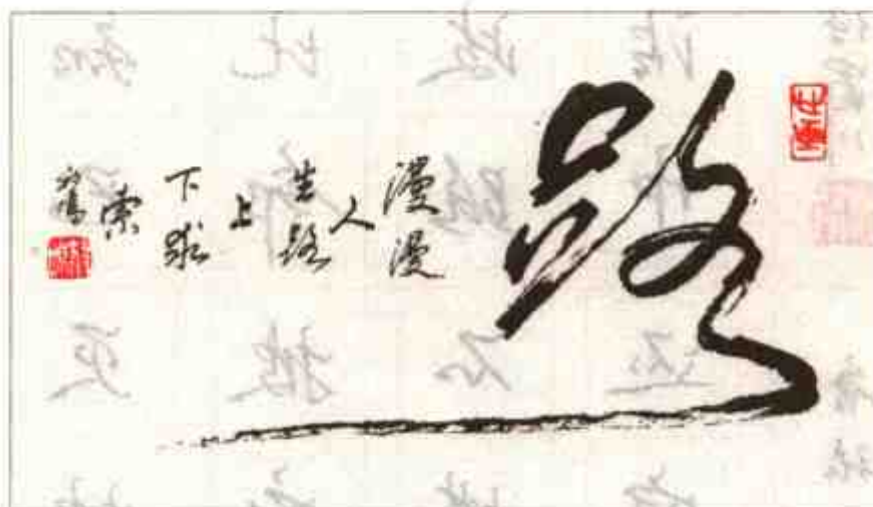 路
漫漫
人
生路
上
下求
索